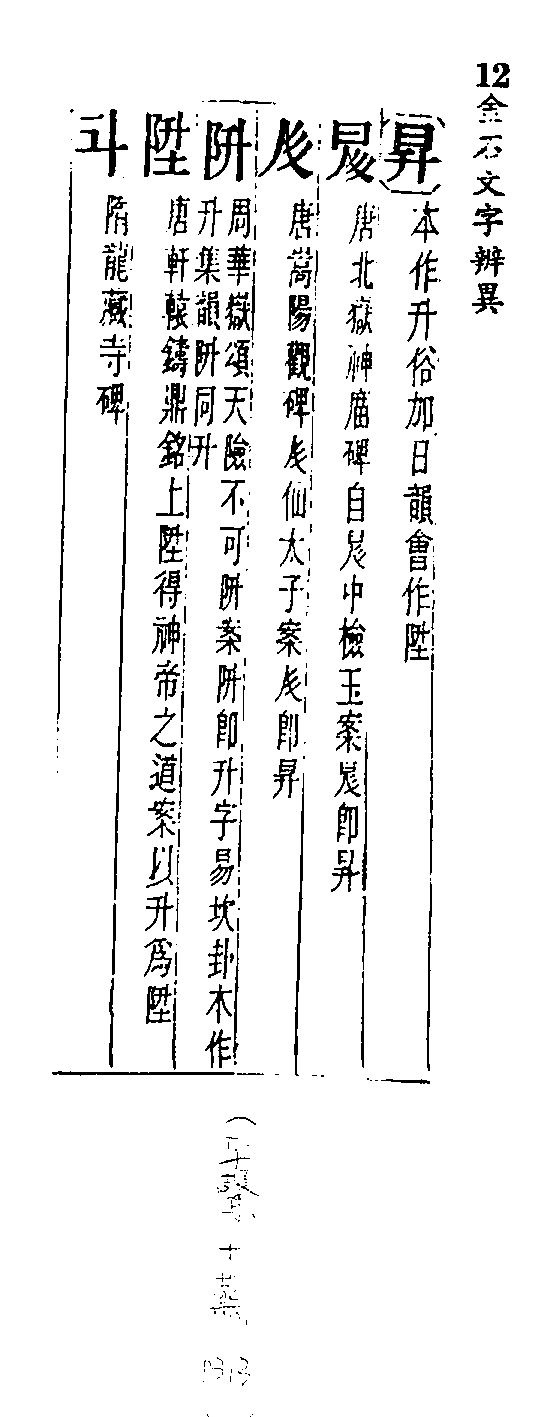 12金石文字辨異
昇 本作升俗加日韻會作陞
唐北嶽神廟碑自 中檢玉案 卽昇
唐嵩陽觀碑 仙太子案 卽昇
阩 周華嶽頌天險不可阩案阩卽升字易坎卦本作
升集韻阩同升
陞 唐軒轅鑄鼎銘上陞得神帝之道案以升爲陞
隋龍藏寺碑
十蒸